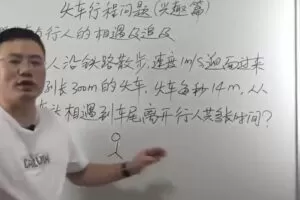 火车行程问题(兴趣篇)
的行人的相遇及追及
人沿铁路散步,速度1m/s迎面过来
列长300m的火车,火车每秒14m,从
头相遇到车尾离开行人共多长时间?